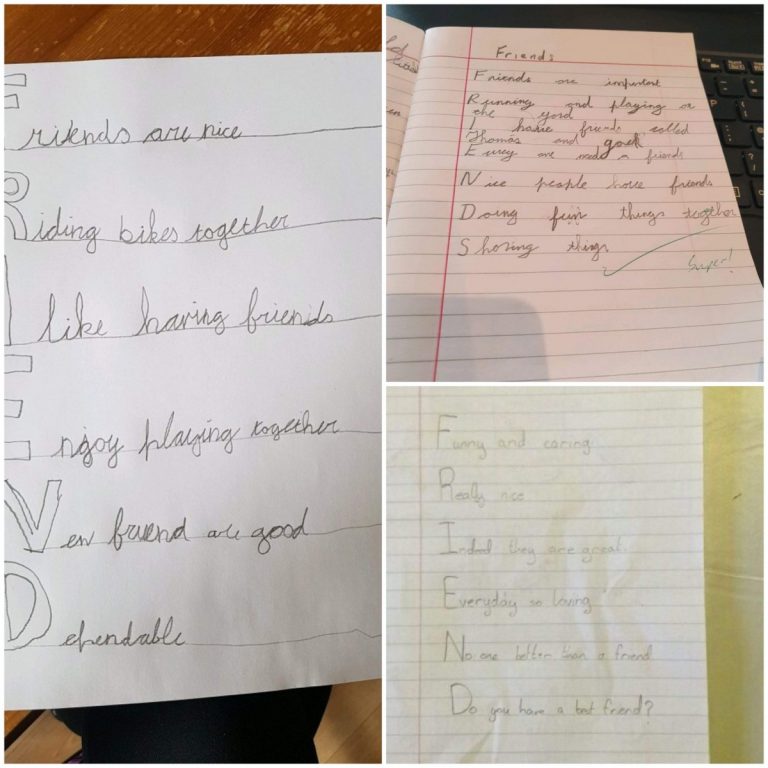 Friends are nice
Riding bikes together
I like having friends
Enjoy playing together
Nen friend are good
Dependable
Friends
Friends are important
Running and playing on
the yard
I have friends called
Thomas and
are friends
Nice people have friends
Doing fun things together
Sharing things
Super!
Funny and caring.
Really nice
Indeed they are great.
Everyday so loving
No one better than a friend
Do you have a best friend?